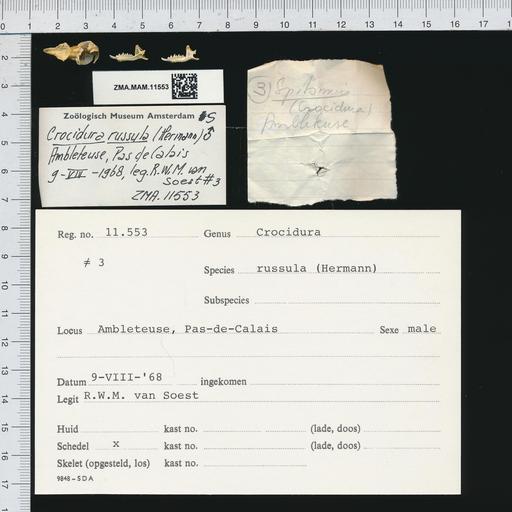 ZMA.MAM.11553
Zoölogisch Museum Amsterdam S
Crocidura russula (Hermann) ♂
Ambleteuse, Pas de Calais
9-VIII-1968, leg. R.W.M. van
Soest #3
ZMA.11553
3) Spitsmuis
(Crocidura)
Ambleteuse
Reg. no. 11.553 Genus Crocidura
≠ 3
Species russula (Hermann)
Subspecies
Locus Ambleteuse, Pas-de-Calais Sexe male
Datum 9-VIII-'68 ingekomen
Legit R.W.M. van Soest
Huid kast no. (lade, doos)
Schedel x kast no. (lade, doos)
Skelet (opgesteld, los) kast no.
9848 - S D A